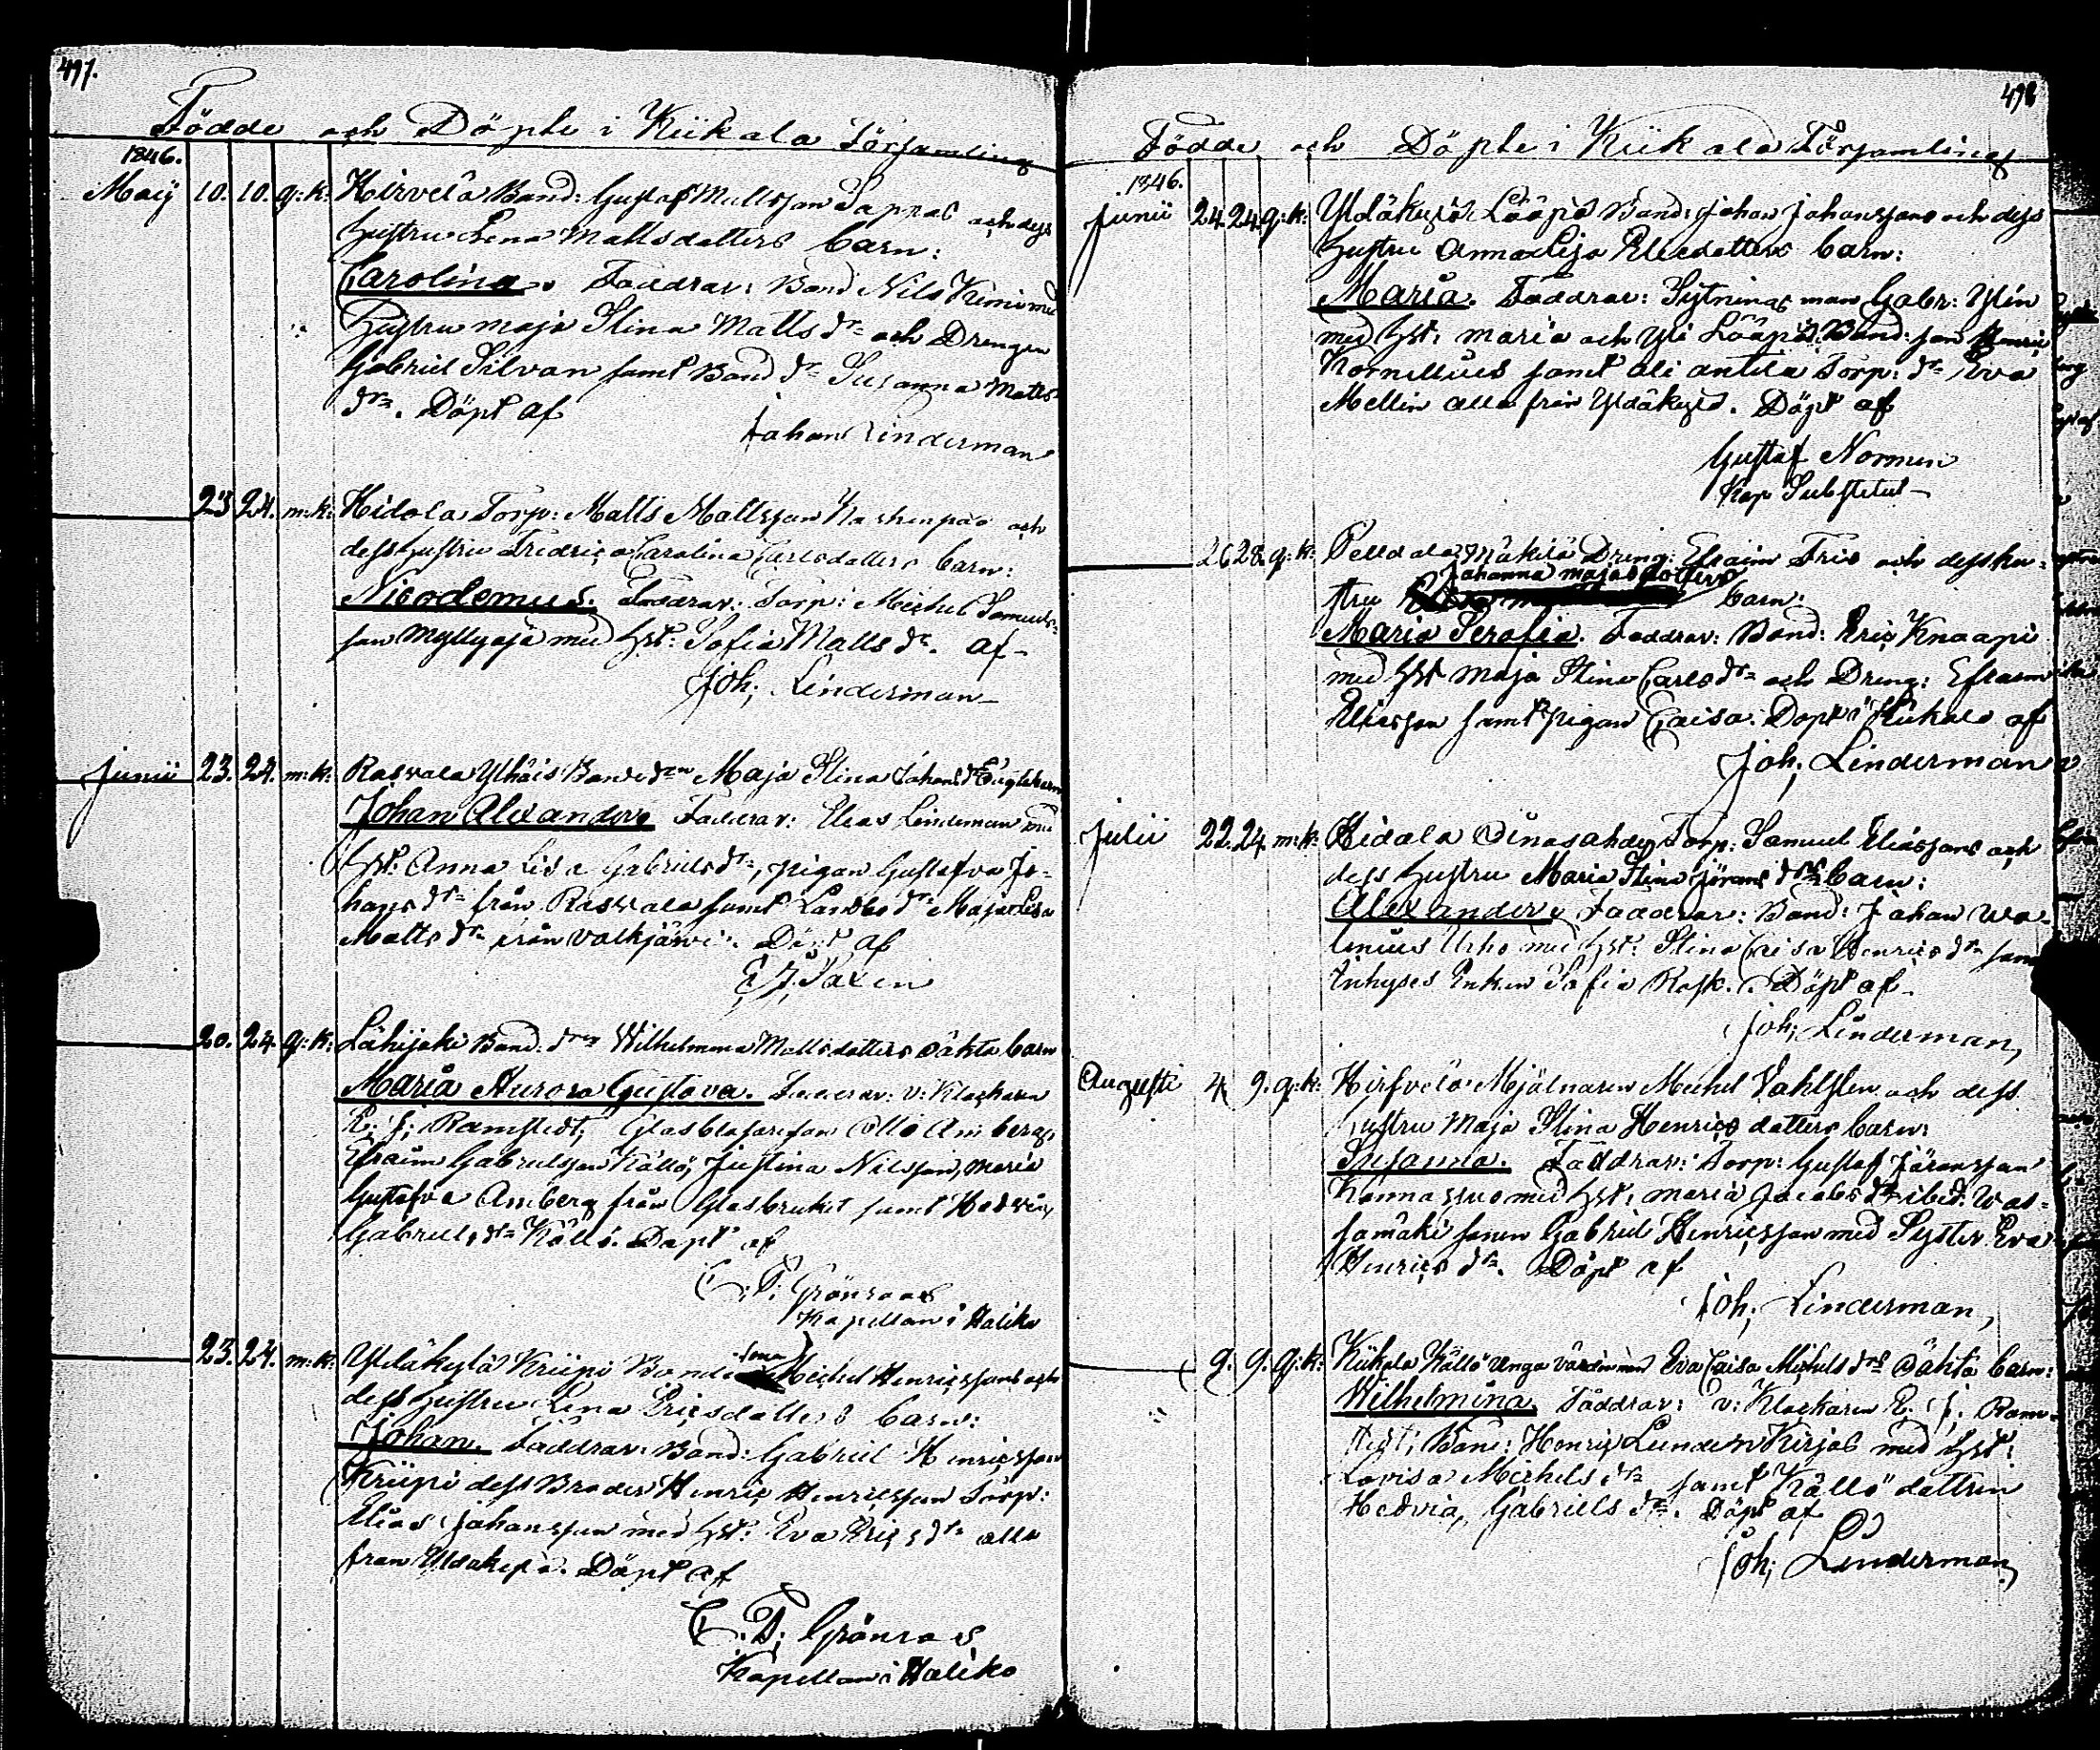 497.
Födde och Döpte i Kiikala Församling
1846.
Maij 10. 10. q: k: Hirvelä Bond: Gustaf Mattsson Sapras och dess
hustru Lena Mattsdotters barn:
Carolina. Faddrar: Bond Nils Kumi med
hustru Maja Stina Matts dr och Drengen
Gabriel Silvan samt Bond dr Susanna Matts
dr. Döpt af
Johan Linderman
23 24. m: k: Hidola Torp: Matts Mattsson och
dess hustru Fredrica Carolina Carlsdotters barn:
Nicodemus. Faddrar: Torp: Michel Samuels-
son Myllyoja med hst: Sofia Matts dr. af
Joh: Linderman
Junii 23. 24. m: k: Rasvala Ylhäis Bonde drn Maja Stina Johans dr barn
Johan Alexander. Faddrar: Elias Lindeman med
hst: Anna Lisa Gabriels dr, pigan Gustafva Jo-
hans dr från Rasvala samt Landbo dr Maja Lisa
Matts dr från Valkjärvi. Döpt af
Saxen
20. 24. q: k: Lähijoki Bond: drn Wilhelmina Mattsdotters oäkta barn
Maria Aurora Gustava. Faddrar: v: Klockaren
E: J: Ramstedt; Glasblåsaresson Otto Amberg,
Efraim Gabrielsson Källö, Justina Nilsson, Maria
Gustafva Amberg från Glasbruket samt Hedvig
Gabriels dr Källö. Döpt af
C. T. Grönroos
Kapellan i Haliko
23. 24. m: k: Yltäkylä Kriipi Bonde sonen Michel Henricssons och
dess hustru Lena Ericsdotters barn:
Johan. Faddrar: Bond: Gabriel Henricsson
Kriipi dess Broder Henric Henricsson Torp:
Elias Johansson med hst: Eva Erics dr alla
från Yltäkylä. Döpt af
C. T. Grönroos
Kapellan i Haliko
498
Födde och Döpte i Kiikala Församling
1846.
Junii 24. 24. q: k: Yltäkylä Lääpis Bond: Johan Johanssons och dess
hustru Anna Lisa Eliedotters barn:
Maria. Faddrar: Sytningsman Gabr: Ylin
med hst: Maria och Yli Lääpis Bond: son Henric
Kornellius samt Ali Antila Torp: dr Eva
Mellin alla från Yltäkylä. Döpt af
Gustaf Normen
Kap Substitut
26. 28. q: k: Pelldola Mäkilä Dreng: Efraim Friis och dess hu-
stru Johanna Majasdotters barn:
Maria Serafia. Faddrar: Bond: Eric Knaapi
med hst Maja Stina Carls dr och Dreng: Efraim
Eliesson samt pigan Caisa. Döpt i Kiikala af
Joh: Linderman
Julii 22. 24. m: k: Hidola Torp: Samuel Eliassons och
dess hustru Maria Stina Jörans drs barn:
Alexander. Faddrar: Bond: Johan Wa-
lenius Urho med hst: Stina Caisa Henrics dr samt
Inhyses Enkan Sofia Rask. Döpt af
Joh: Linderman,
Augusti 4 9. q: k: Hirfvelä Mjölnaren Michel Vahlsten och dess
hustru Maja Stina Henrics dotters barn:
Susanna. Faddrar: Torp: Gustaf Jöransson
Kannassuo med hst: Maria Jacobs dr ibid: Was-
samäki sonen Gabriel Henricsson med Syster Eva
Henrics dr. Döpt af
Joh: Linderman,
9. 9. q: k: Kiikala Källö unga värdinnan Eva Caisa Michels drs oäkta barn:
Wilhelmina. Faddrar: v: Klockaren E. J. Ram-
stedt; Bond: Henric Lundén Kirjas med hst:
Lovisa Michels dr samt Källö dottren
Hedvig Gabriels dr. Döpt af
Joh: Linderman